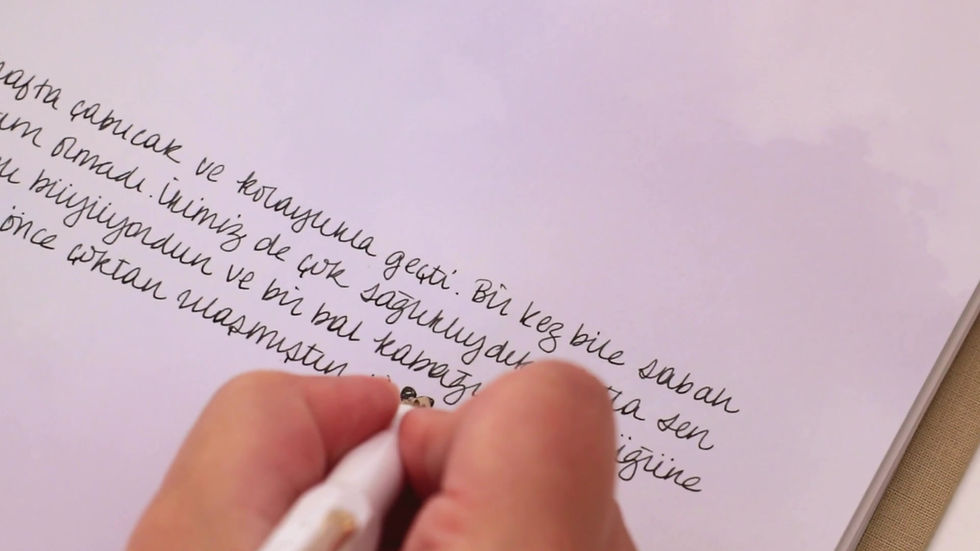 hafta çabucak ve kolaylıkla geçti. Bir kez bile sabah
olmadı. İkimiz de çok sağlıklıydık sen
büyüyordun ve bir bal kabağı üğüne
önce çoktan ulaşmıştın